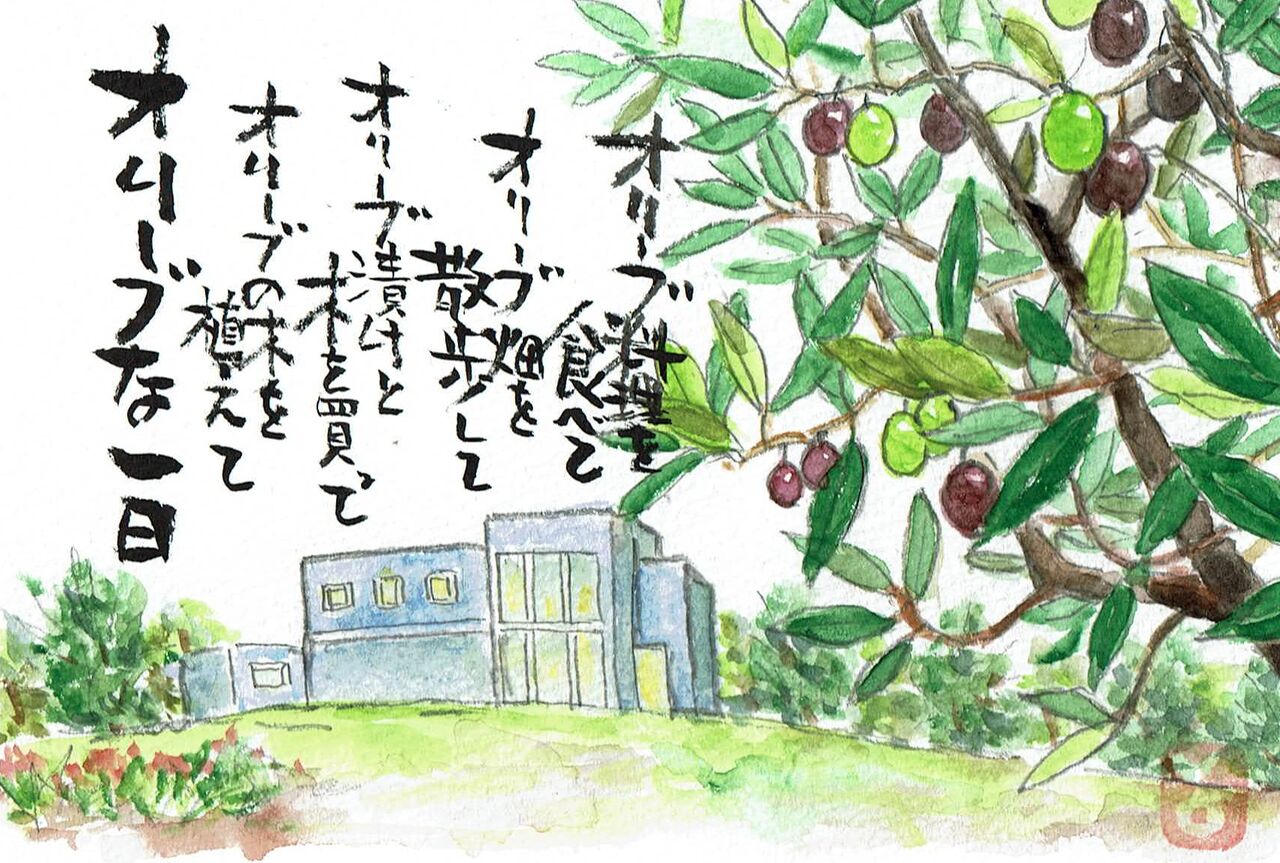 オリーブ料理を
食べて
オリーブ畑を
散歩して
オリーブ漬けと
木を買って
オリーブの木を
植えて
オリーブな一日